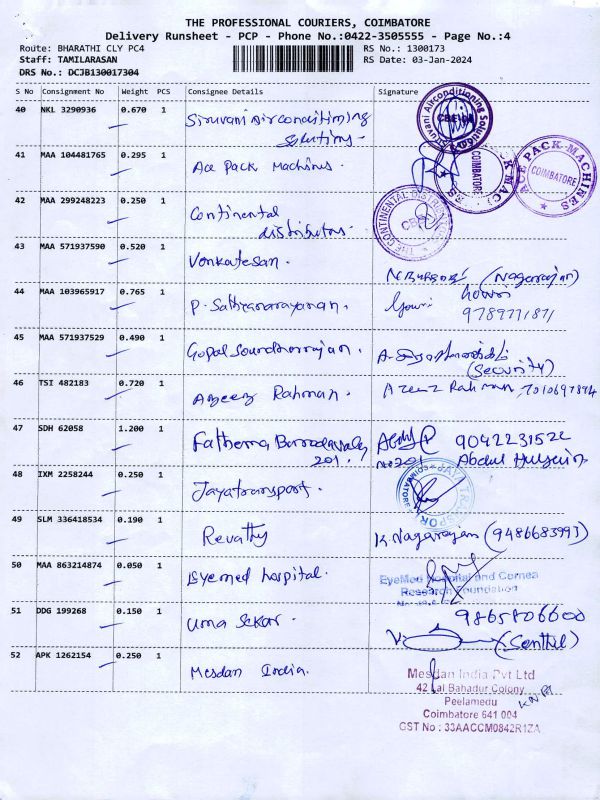 THE PROFESSIONAL COURIERS, COIMBATORE
Delivery Runsheet - PCP - Phone No.:0422-3505555 - Page No.:4
Route: BHARATHI CLY PC4 RS No.: 1300173
Staff: TAMILARASAN RS Date: 03-Jan-2024
DRS No.: DCJB130017304
S No Consignment No Weight PCS Consignee Details Signature
40 NKL 3290936 0.670 1 Siruvani Airconditiming
Solutions.
Siruvani Airconditioning Solution
CBE
41 MAA 104481765 0.295 1 Ace Pack Machines.
COIMBATORE
ACE PACK-MACHINES
COIMBATORE
42 MAA 299248223 0.250 1 Continental
distributors.
THE CONTINENTAL
CBE
43 MAA 571937590 0.520 1 Venkatesan.
(Nagarajan)
44 MAA 103965917 0.765 1 P. Sathyanarayanan. Gowri
9789771871
45 MAA 571937529 0.490 1 Gopal Soundharrajan.
(Security)
46 TSI 482183 0.720 1 Azeez Rahman. Azeez Rahman
47 SDH 62058 1.200 1 Fathema 9042231522
201. No 201 Abdul Hussain
48 IXM 2258244 0.250 1 Jayatransport.
JAYA TRANSPORT
COIMBATORE
49 SLM 336418534 0.190 1 Revathy K. Nagarajan (9486683993)
50 MAA 863214874 0.050 1 Eyemed hospital.
EyeMed Hospital and Cornea
Research Foundation
51 DDG 199268 0.150 1 Uma Sekar. 9865806600
(Senthil)
52 APK 1262154 0.250 1 Mesdan India.
Mesdan India Pvt Ltd
42 Lal Bahadur Colony
Peelamedu
Coimbatore 641 004
GST No : 33AACCM0842R1ZA